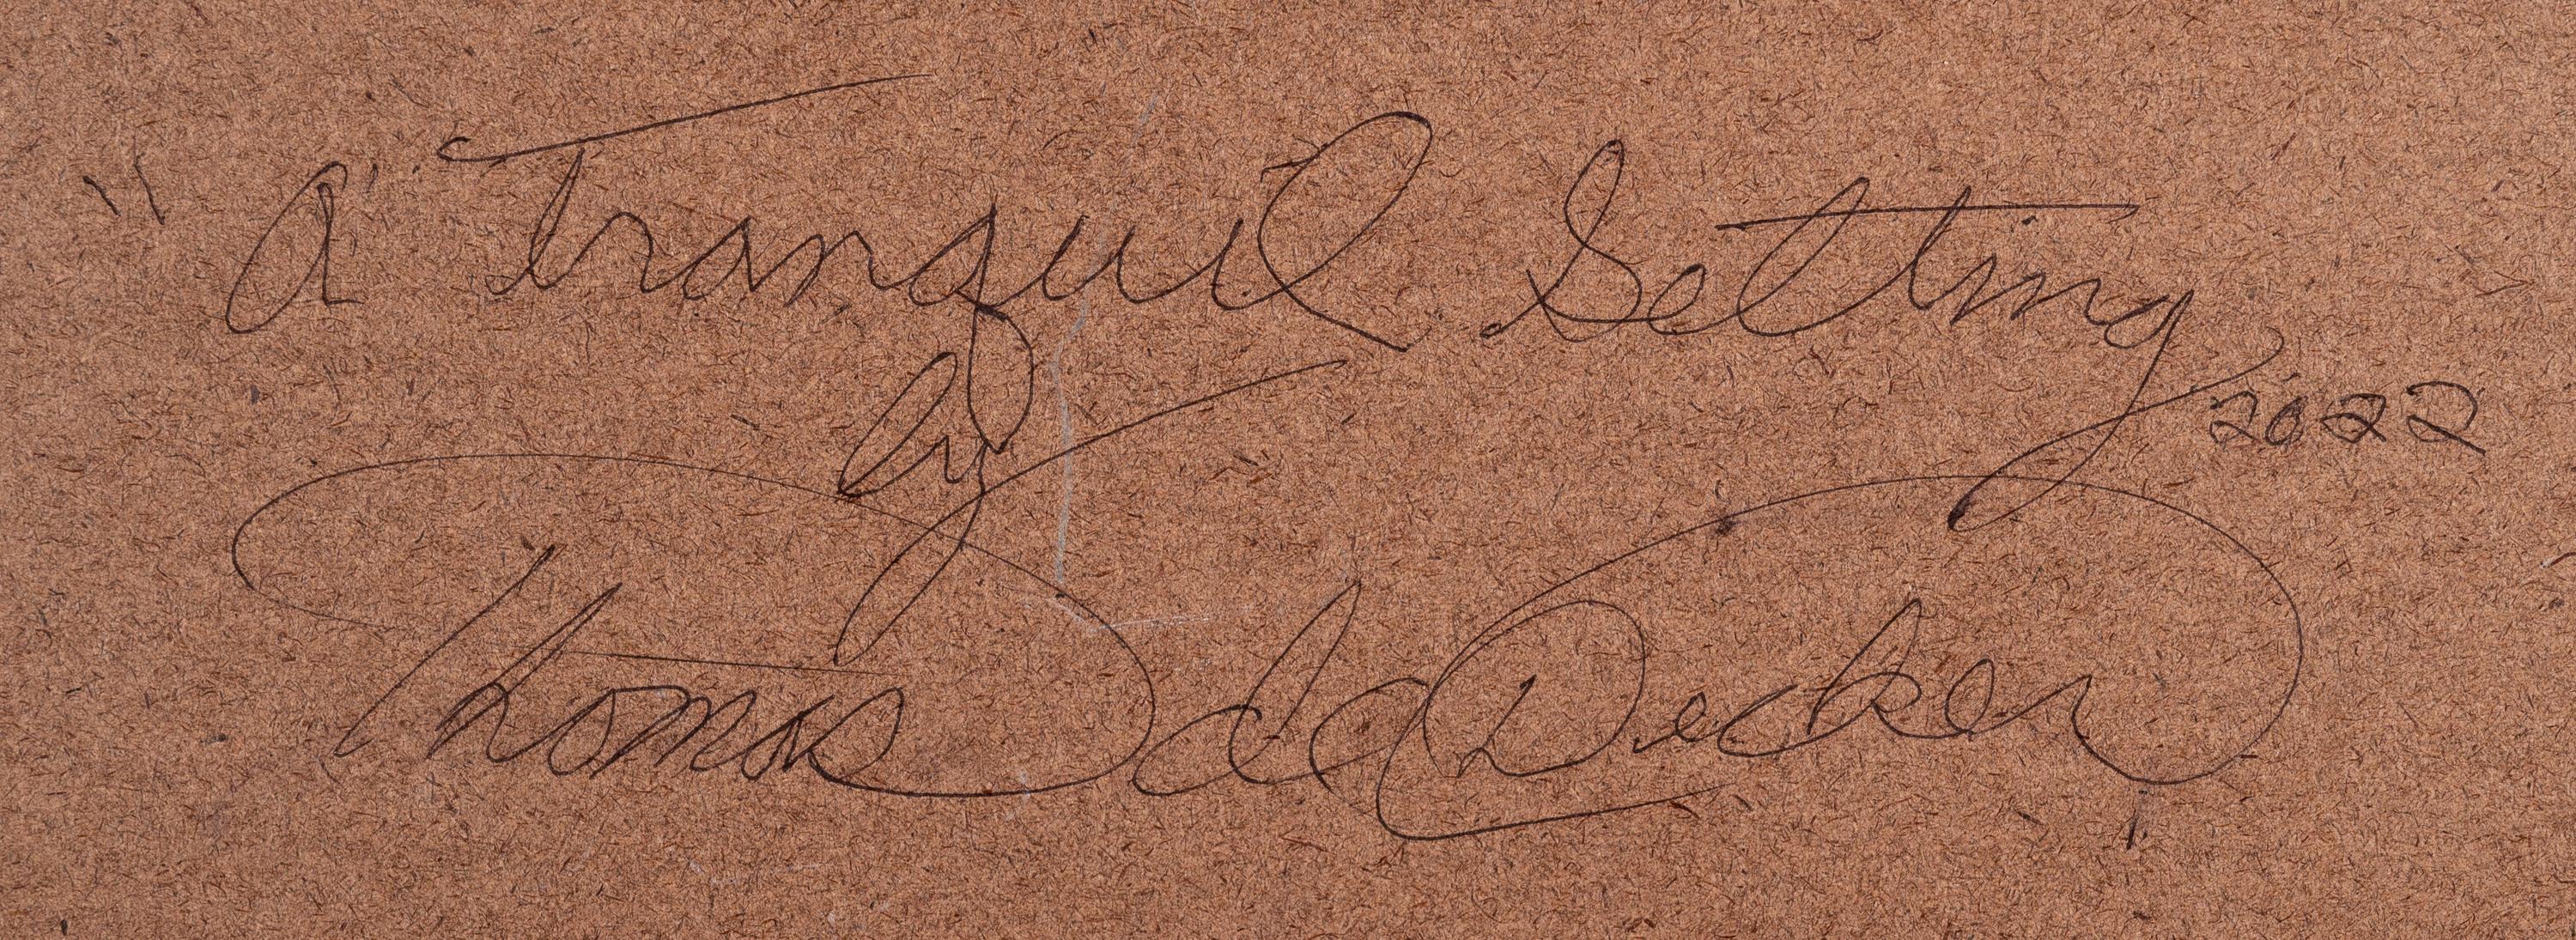 "A Tranquil Setting
by 2022
Thomas de Decker